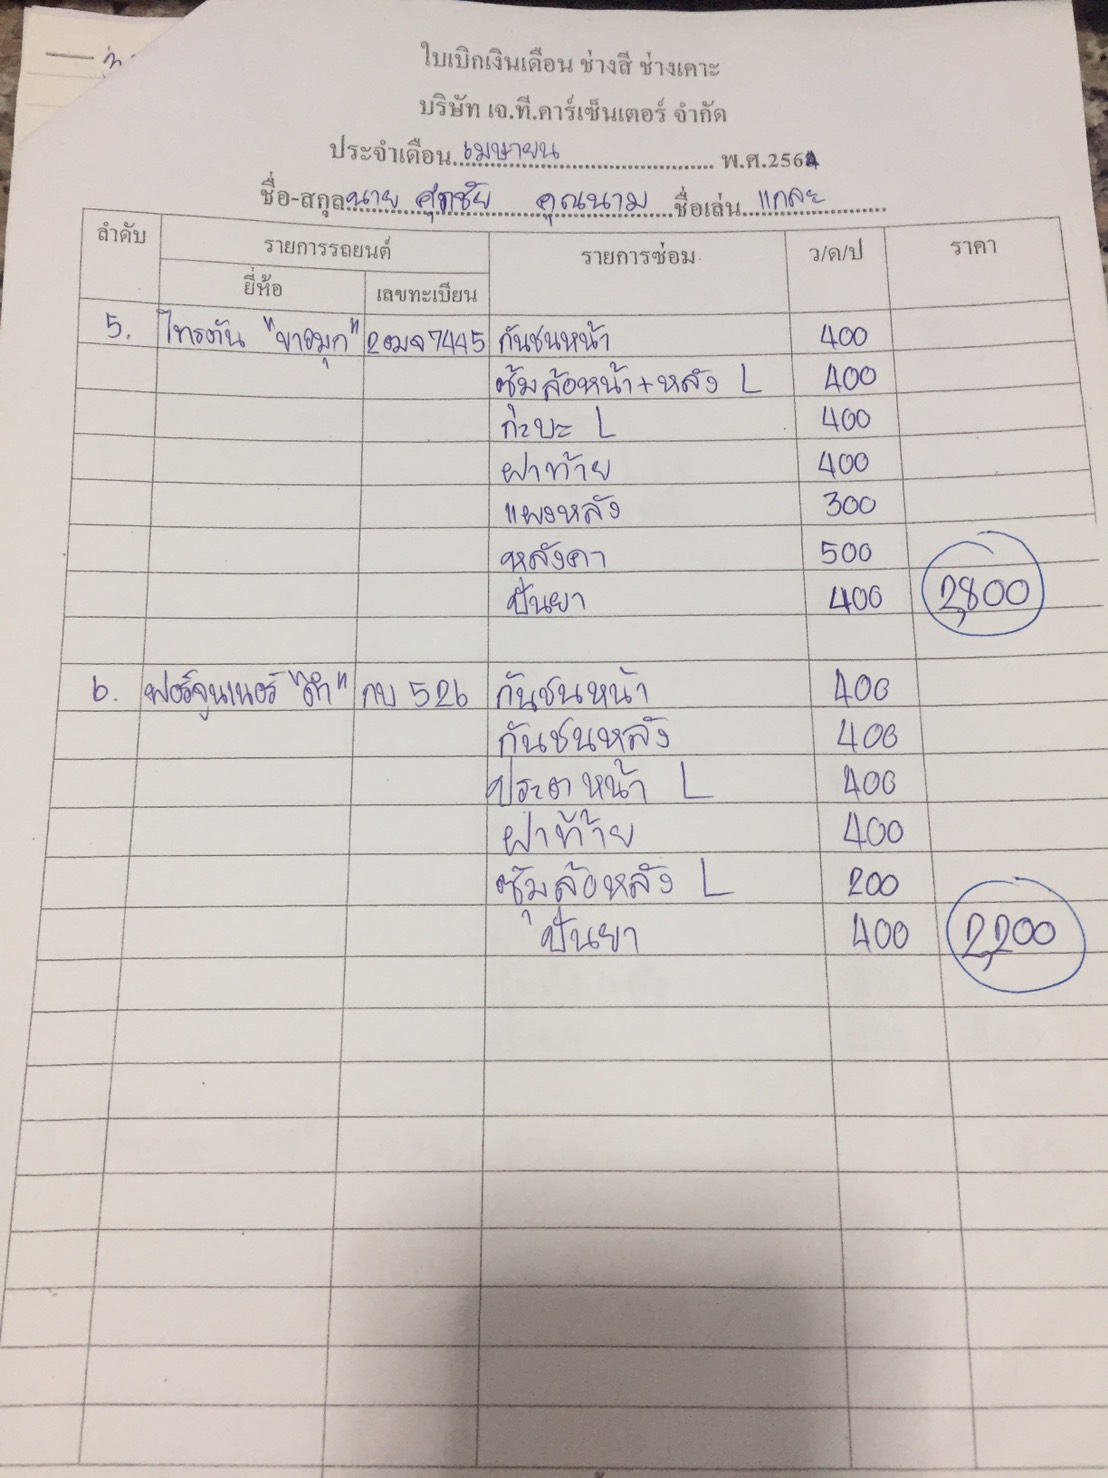 ใบเบิกเงินเดือน ช่างสี ช่างเคาะ
บริษัท เจ.ที.คาร์เซ็นเตอร์ จำกัด
ประจำเดือน เมษายน พ.ศ.2564
ชื่อ-สกุล นาย ศุภชัย คุณนาม ชื่อเล่น แกละ
ลำดับ รายการรถยนต์ รายการซ่อม ว/ด/ป ราคา
ยี่ห้อ เลขทะเบียน
5. ไทรตัน "ขาวมุก" 2ฒจ7445 กันชนหน้า 400
ซุ้มล้อหน้า+หลัง L 400
กะบะ L 400
ฝาท้าย 400
แผงหลัง 300
หลังคา 500
ปั่นยา 400 2,800
6. ฟอร์จูนเนอร์ "ดำ" กบ 526 กันชนหน้า 400
กันชนหลัง 400
ประตู หน้า L 400
ฝาท้าย 400
ซุ้มล้อหลัง L 200
ปั่นยา 400 2,200